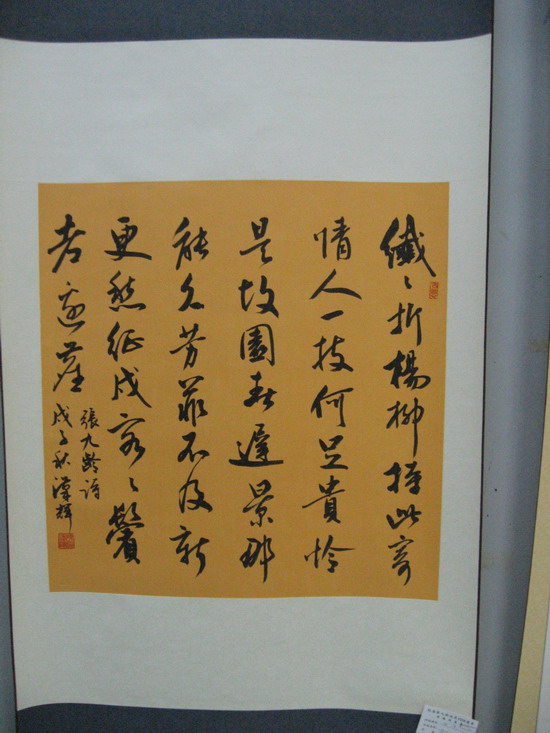 纖〻折楊柳持此寄
情人一枝何足貴怜
是故園春遲景那
能久芳菲不及新
更愁征戍客〻鬢
老邊塵
張九齡詩
戊子秋輝